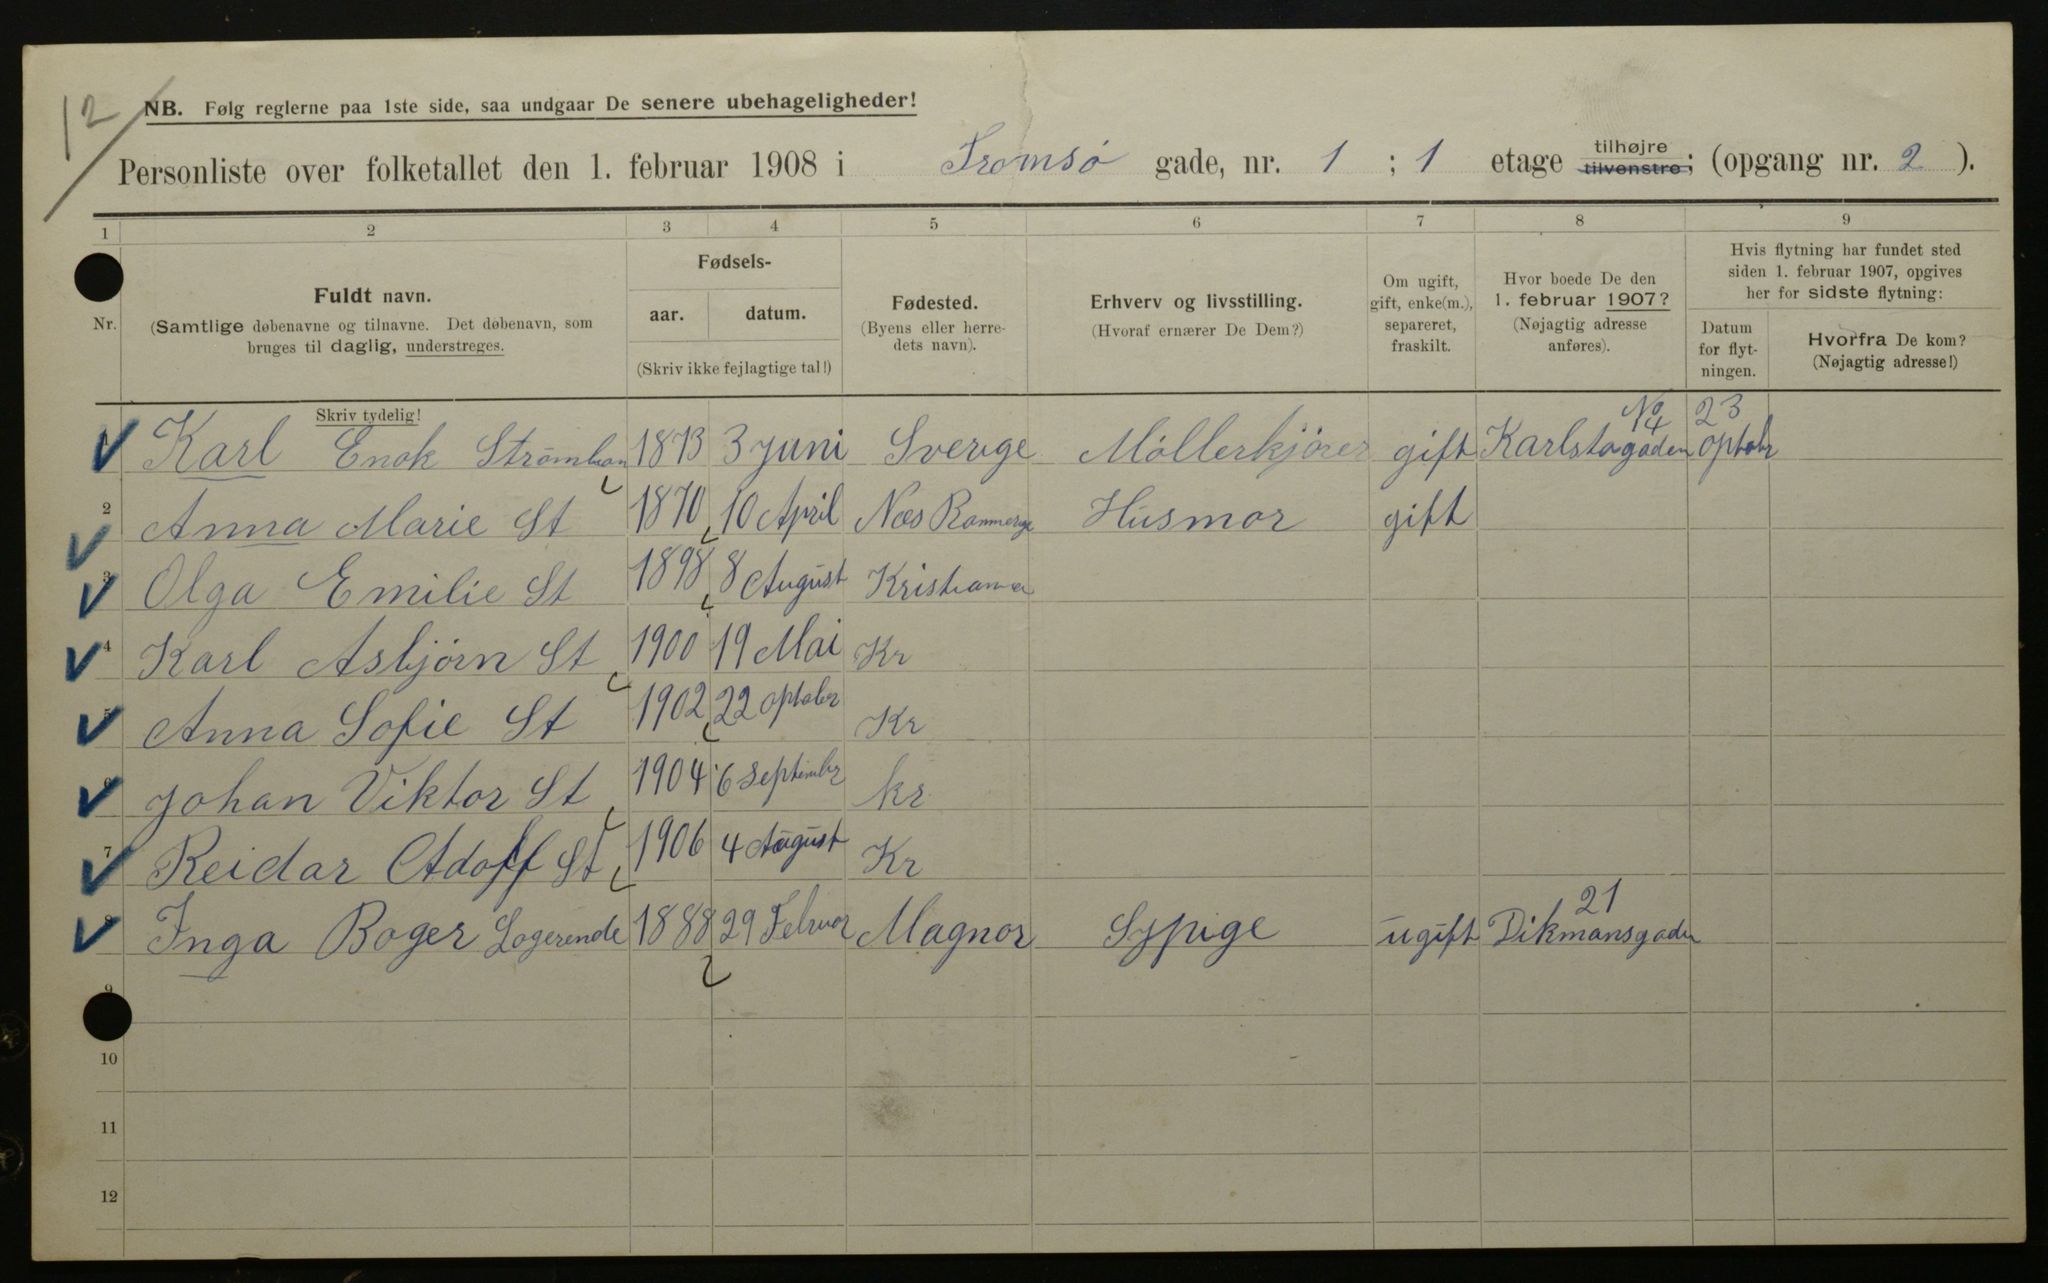 12
NB. Følg reglerne paa 1ste side, saa undgaar De senere ubehageligheder!
Personliste over folketallet den 1. februar 1908 i Tromsø gade, nr. 1 ; 1 etage tilhøjre tilvenstre; (opgang nr. 2 ).
1 2 3 4 5 6 7 8 9
Nr.
Fuldt navn.
(Samtlige døbenavne og tilnavne. Det døbenavn, som
bruges til daglig, understreges.
Skriv tydelig!
Fødsels-
aar. datum.
(Skriv ikke fejlagtige tal!)
Fødested.
(Byens eller herre-
dets navn).
Erhverv og livsstilling.
(Hvoraf ernærer De Dem?)
Om ugift,
gift, enke(m.),
separeret,
fraskilt.
Hvor boede De den
1. februar 1907?
(Nøjagtig adresse
anføres).
Hvis flytning har fundet sted
siden 1. februar 1907, opgives
her for sidste flytning:
Datum
for flyt-
ningen.
Hvorfra De kom?
(Nøjagtig adresse!)
Karl Enok 1873 3 juni Sverige Møllerkjører gift No 4 23 optobr
2 Anna Marie St 1870 10 April Næs Husmor gift
3 Olga Emilie St 1898 8 August Kristiania
4 Karl Asbjørn St 1900 19 Mai Kr
5 Anna Sofie St 1902 22 optober Kr
6 Johan Viktor St 1904 6 September kr
7 Reidar Adolf St 1906 4 August Kr
8 Inga Boger Logerende 1888 29 Februar Magnor Sypige ugift Dikmansgaden 21
9
10
11
12